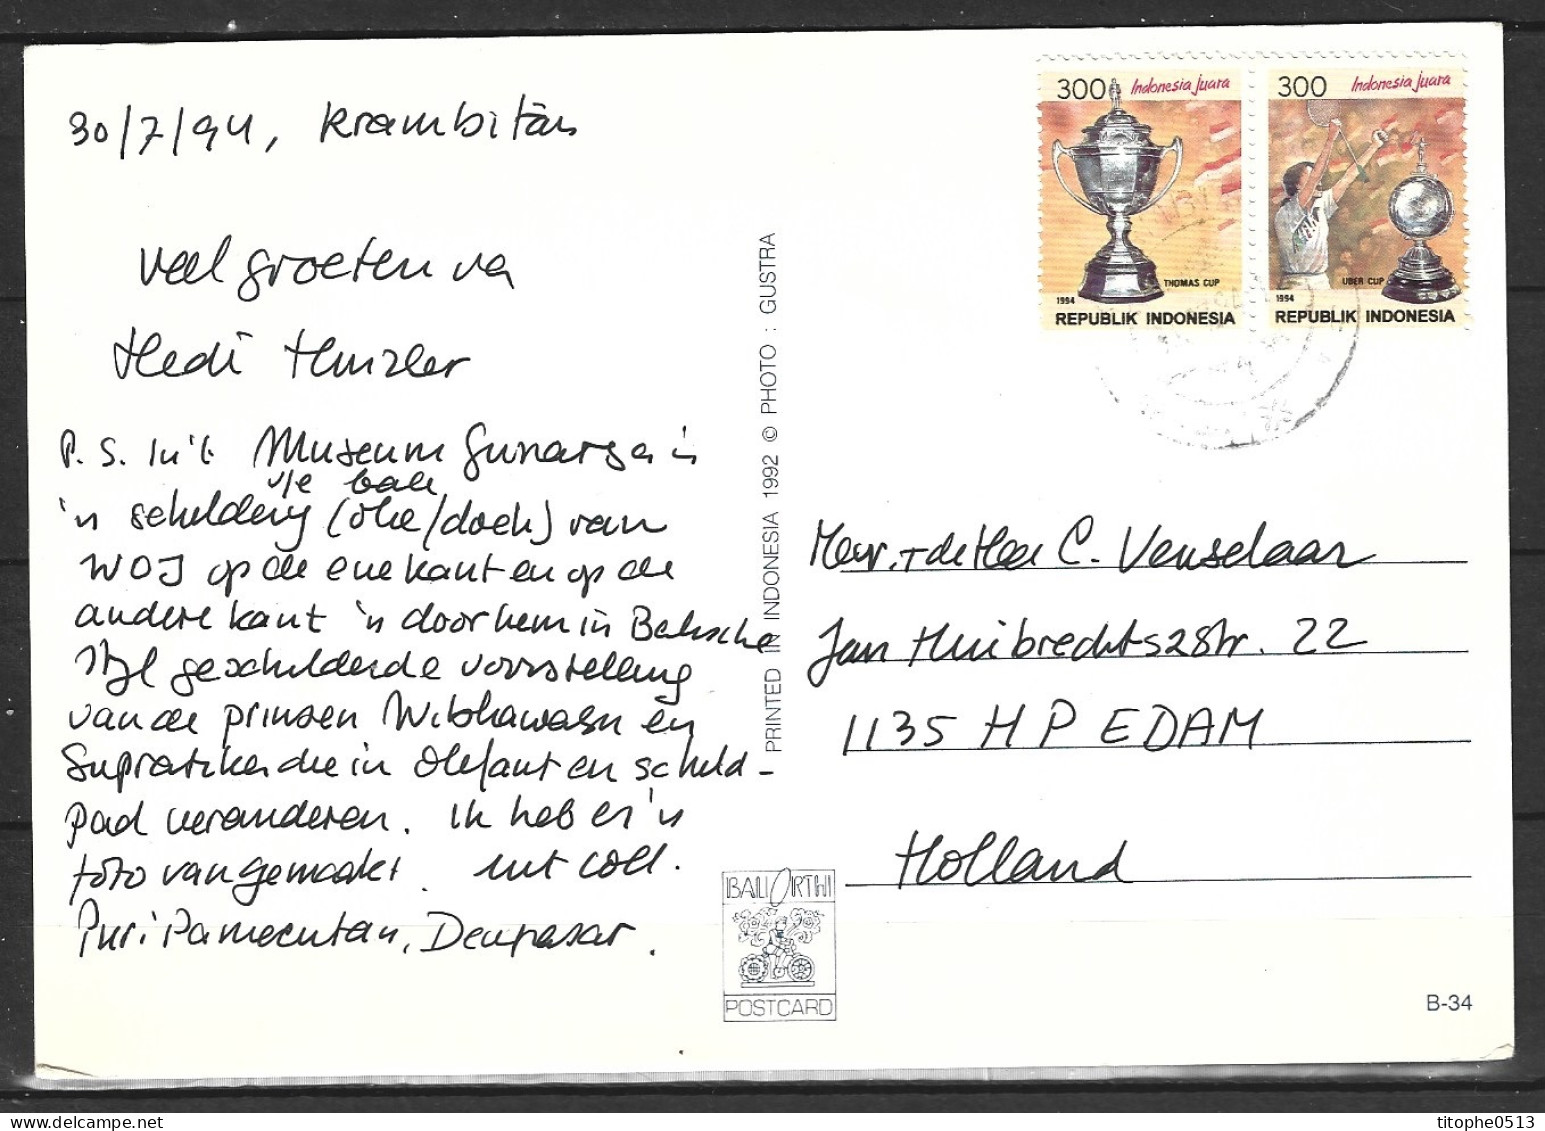 30/7/94, Krambitan
veel groeten va
Hedi Hinzler
P.S. In 't Museum Gunarsa is
'n schildering (olie/doek) van
WOJ op de ene kant en op de
andere kant 'n door hem in Balische
stijl geschilderde voorstelling
van de prinsen Wibhawasu en
Supratika die in olifant en schild-
pad veranderen. Ik heb er 'n
foto van gemaakt. uit coll.
Puri Pamecutan, Denpasar.
PRINTED IN INDONESIA 1992 © PHOTO : GUSTRA
BALI ORTHI
POSTCARD
300 Indonesia juara
THOMAS CUP
1994
REPUBLIK INDONESIA
300 Indonesia juara
UBER CUP
1994
REPUBLIK INDONESIA
Mevr. + de Heer C. Venselaar
Jan Huibrechtszstr. 22
1135 HP EDAM
Holland
B-34
titophe0513